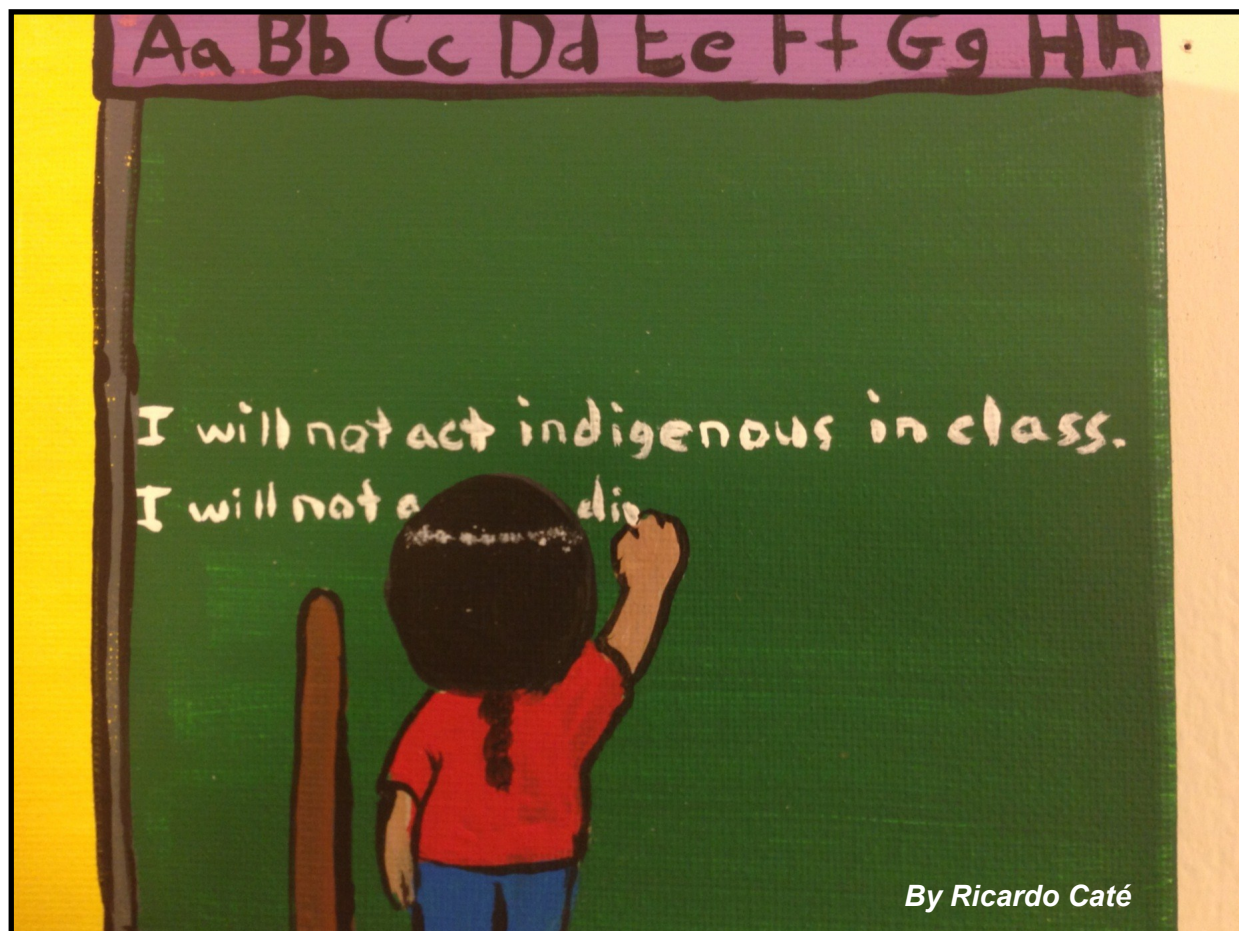 Aa Bb Cc Dd Ee Ff Gg Hh
I will not act indigenous in class.
I will not a di
By Ricardo Caté